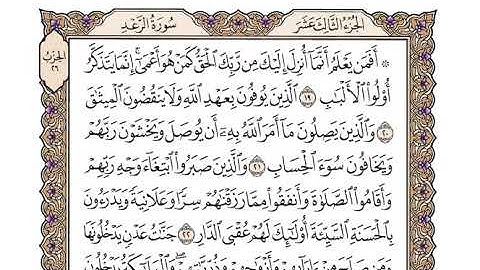 الجزء الثالث عشر
سورة الرعد
الحزب
٢٦
۞ أَفَمَن يَعْلَمُ أَنَّمَا أُنزِلَ إِلَيْكَ مِن رَّبِّكَ ٱلْحَقُّ كَمَنْ هُوَ أَعْمَىٰٓ إِنَّمَا يَتَذَكَّرُ
أُو۟لُوا۟ ٱلْأَلْبَٰبِ ١٩ ٱلَّذِينَ يُوفُونَ بِعَهْدِ ٱللَّهِ وَلَا يَنقُضُونَ ٱلْمِيثَٰقَ
٢٠ وَٱلَّذِينَ يَصِلُونَ مَآ أَمَرَ ٱللَّهُ بِهِۦٓ أَن يُوصَلَ وَيَخْشَوْنَ رَبَّهُمْ
وَيَخَافُونَ سُوٓءَ ٱلْحِسَابِ ٢١ وَٱلَّذِينَ صَبَرُوا۟ ٱبْتِغَآءَ وَجْهِ رَبِّهِمْ
وَأَقَامُوا۟ ٱلصَّلَوٰةَ وَأَنفَقُوا۟ مِمَّا رَزَقْنَٰهُمْ سِرًّا وَعَلَانِيَةً وَيَدْرَءُونَ
بِٱلْحَسَنَةِ ٱلسَّيِّئَةَ أُو۟لَٰٓئِكَ لَهُمْ عُقْبَى ٱلدَّارِ ٢٢ جَنَّٰتُ عَدْنٍ يَدْخُلُونَهَا
وَمَن صَلَحَ مِنْ ءَابَآئِهِمْ وَأَزْوَٰجِهِمْ وَذُرِّيَّٰتِهِمْ وَٱلْمَلَٰٓئِكَةُ يَدْخُلُونَ